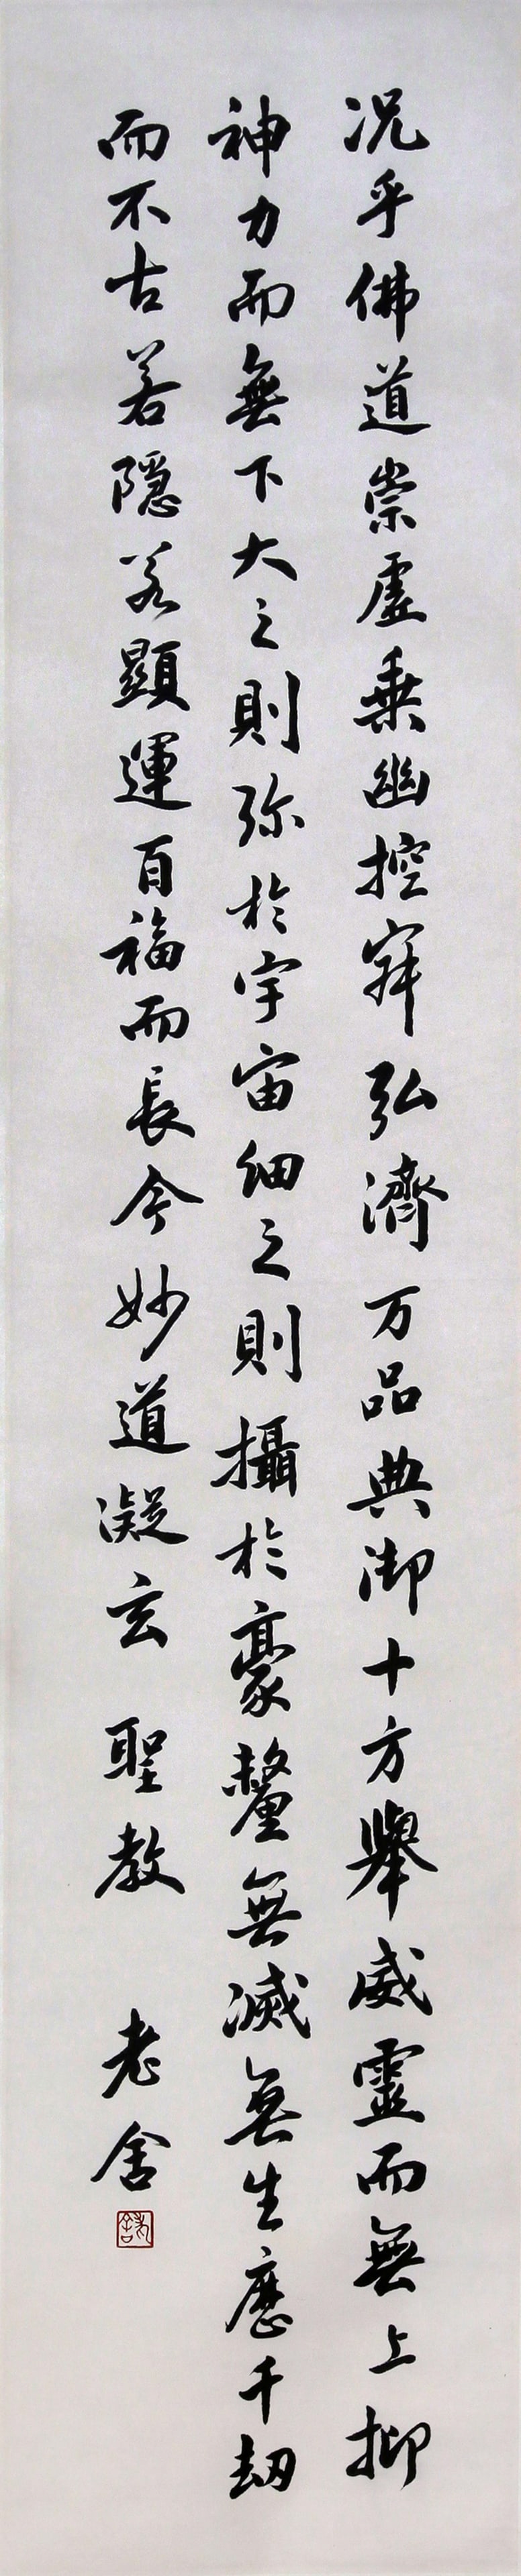 况乎佛道崇虚乗幽控寂弘濟万品典御十方舉威靈而無上抑
神力而無下大之則弥於宇宙細之則攝於豪釐無滅無生歷千劫
而不古若隱若顯運百福而長今妙道凝玄 聖教 老舍